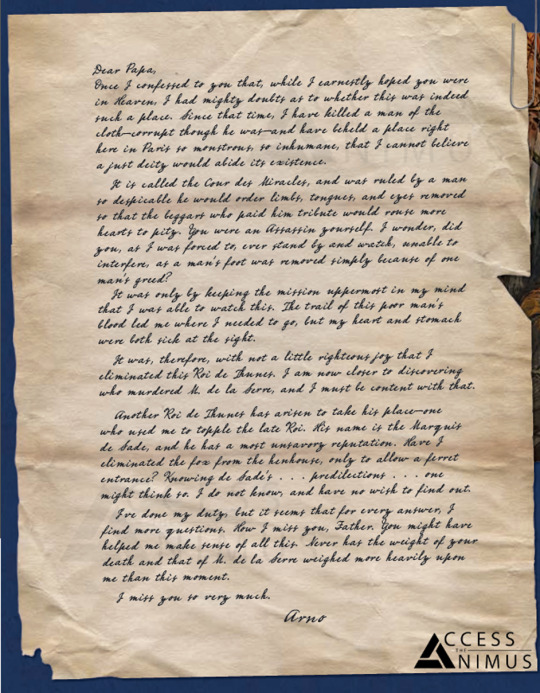 Dear Papa,
Once I confessed to you that, while I earnestly hoped you were
in Heaven, I had mighty doubts as to whether this was indeed
such a place. Since that time, I have killed a man of the
cloth—corrupt though he was—and have beheld a place right
here in Paris so monstrous, so inhumane, that I cannot believe
a just deity would abide its existence.
It is called the Cour des Miracles, and was ruled by a man
so despicable he would order limbs, tongues, and eyes removed
so that the beggars who paid him tribute would rouse more
hearts to pity. You were an Assassin yourself. I wonder, did
you, as I was forced to, ever stand by and watch, unable to
interfere, as a man's foot was removed simply because of one
man's greed?
It was only by keeping the mission uppermost in my mind
that I was able to watch this. The trail of this poor man's
blood led me where I needed to go, but my heart and stomach
were both sick at the sight.
It was, therefore, with not a little righteous joy that I
eliminated this Roi de Thunes. I am now closer to discovering
who murdered M. de la Serre, and I must be content with that.
Another Roi de Thunes has arisen to take his place—one
who used me to topple the late Roi. His name is the Marquis
de Sade, and he has a most unsavory reputation. Have I
eliminated the fox from the henhouse, only to allow a ferret
entrance? Knowing de Sade's . . . predilections . . . one
might think so. I do not know, and have no wish to find out.
I've done my duty, but it seems that for every answer, I
find more questions. How I miss you, Father. You might have
helped me make sense of all this. Never has the weight of your
death and that of M. de la Serre weighed more heavily upon
me than this moment.
I miss you so very much.
Arno
ACCESS
THE
ANIMUS